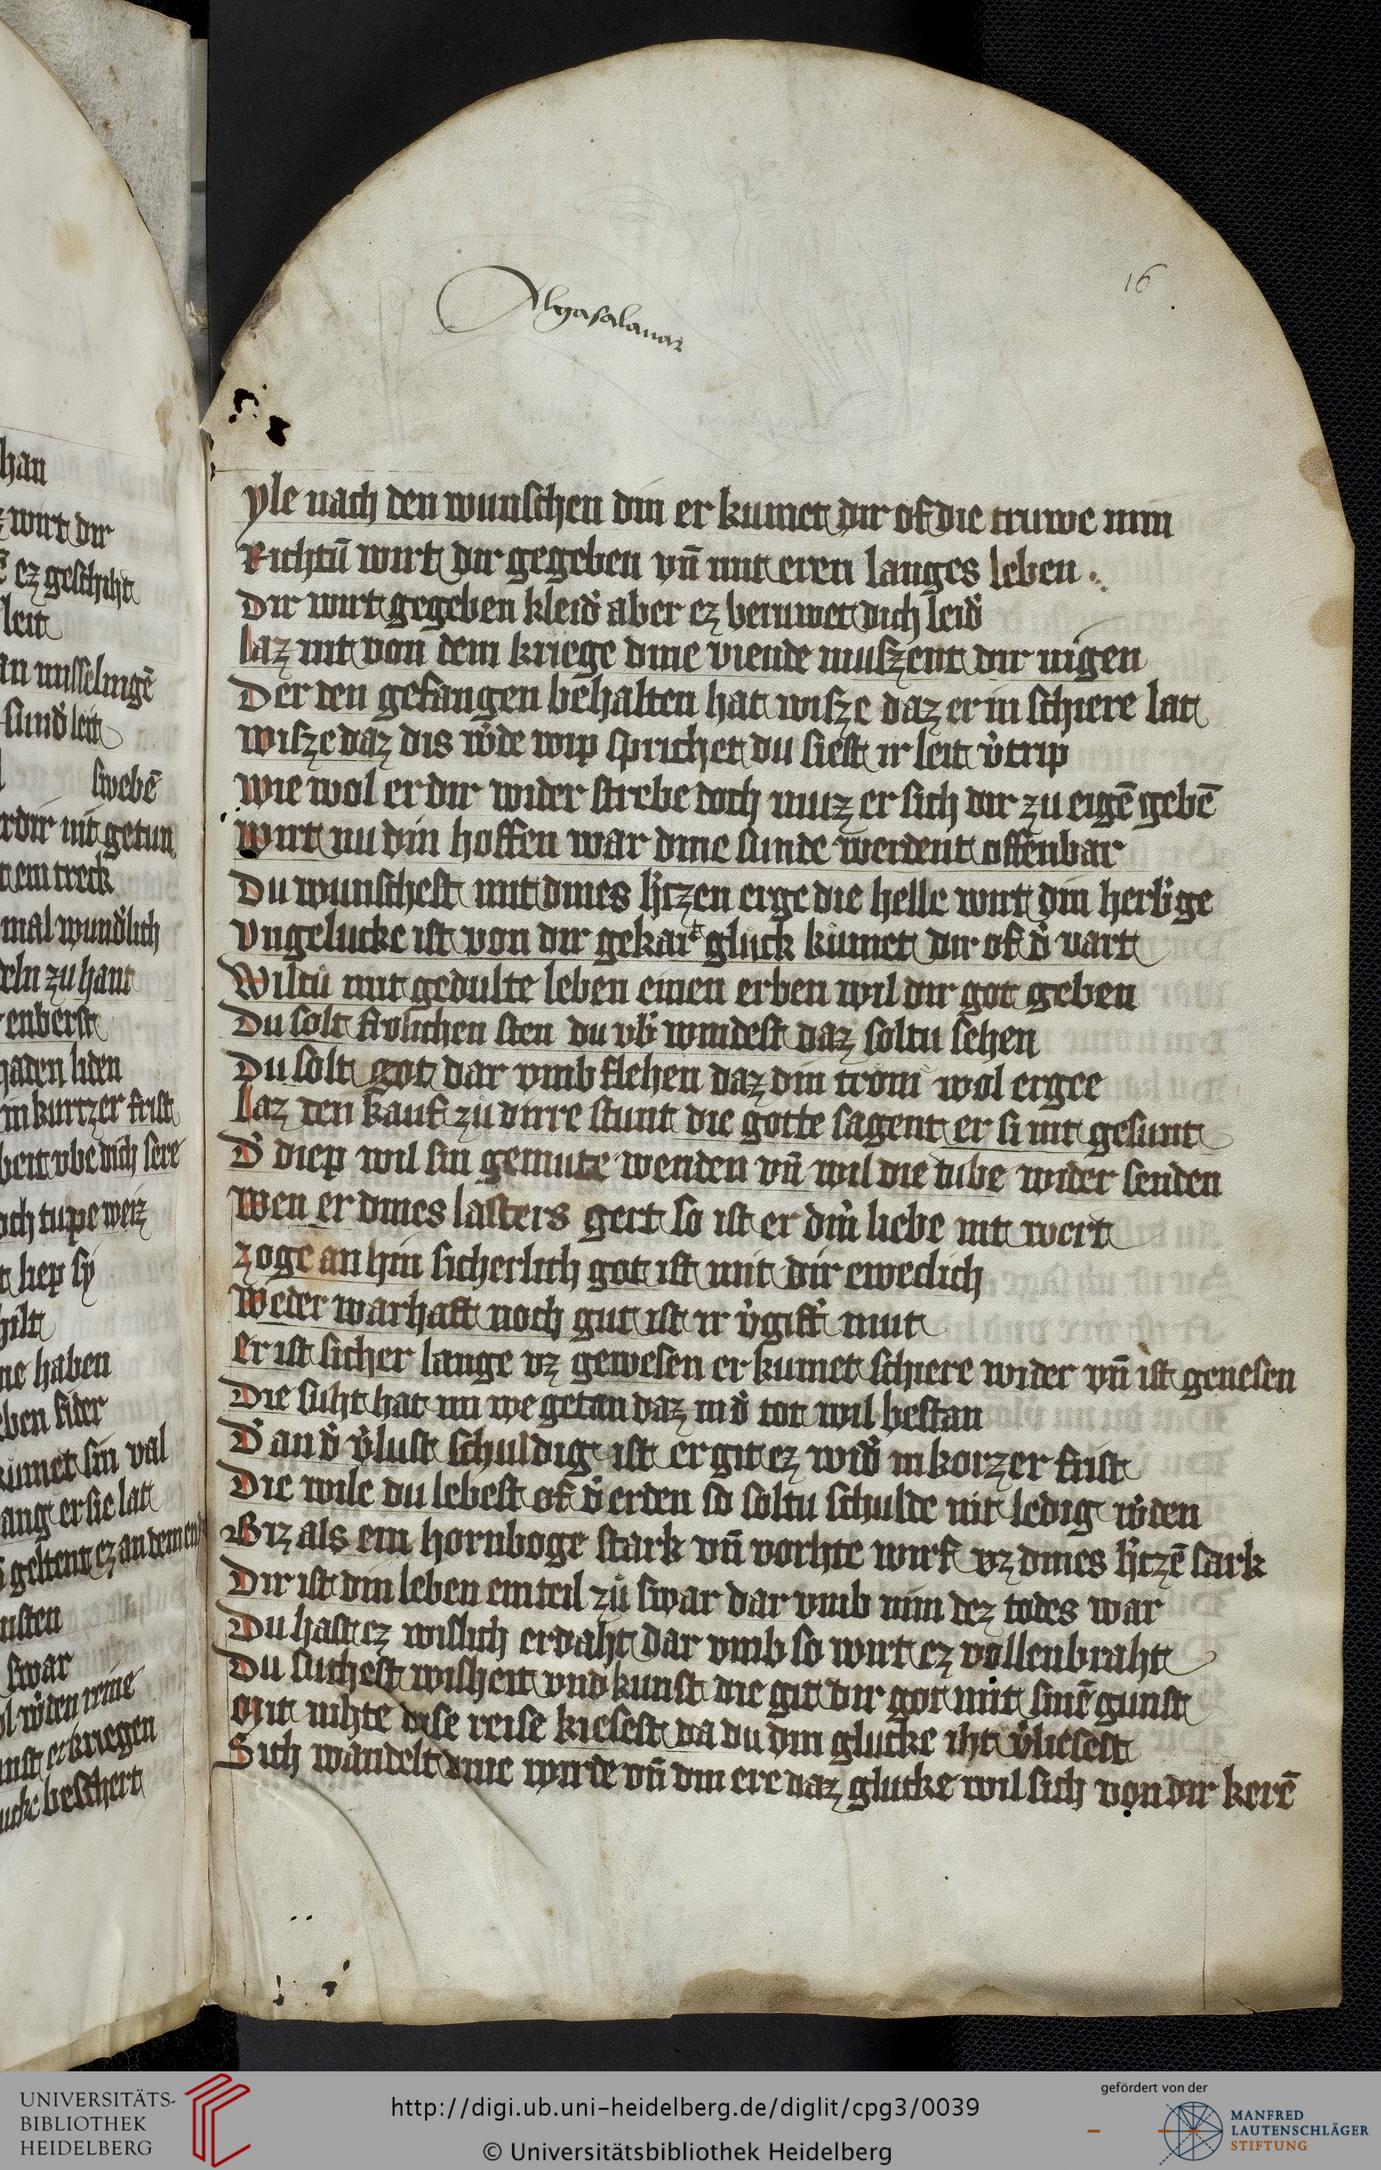 han
wirt dir
ez geschiht
leit
an misselingē
sind̛ leit
swebē
er dir nit getun
t ein treck
mal wund̛lich
deln zu hant
enberst
gaden liden
in kurtzer frist
beit vbe dich sere
och tupe weiz
t liep sy
hilt
ne haben
eben sider
kumet sin val
lang er sie lat
geltent ez an dem end
unsten
swar
unst erkriegen
lucke beschert
Algasalanar
16
yle nach den wunschen din er kumet dir of die truwe min
Richtū wirt dir gegeben vn̄ mit eren langes leben
Dir wirt gegeben kleid̛ aber ez beruwet dich leid̛
laz nit von dem kriege dine viende muszent dir nigen
Der den gefangen behalten hat wisze daz er in schiere lat
wisze daz dis w̛de wip sprichet du siest ir leit v̛trip
wie wol er dir wider strebe doch muz er sich dir zu eigē gebē
wirt nu din hoffen war dine sunde werdent offenbar
Du wunschest mit dines h̛tzen erge die helle wirt din herb̛ge
vngelucke ist von dir gekart gluck kumet dir of d̛ vart
Wiltu mit gedulte leben einen erben wil dir got geben
Du solt frolichen sten du vb̛ windest daz soltu sehen
Du solt got dar vmb flehen daz din trom wol ergee
laz den kauf zu dirre stunt die gotte sagent er si nit gesunt
D̛ diep wil sin gemute wenden vn̄ wil die tube wider senden
Wen er dines lasters gert so ist er din̛ liebe nit wert
zoge an hin sicherlich got ist mit dir eweclich
Weder warhaft noch gut ist ir v̛gift̛ mut
Er ist sicher lange vz gewesen er kumet schiere wider vn̄ ist genesen
Die suht hat im we getan daz in d̛ tot wil bestan
D̛ an d̛ v̛lust schuldig ist er git ez wid̛ in korzer frist
Die wile du lebest of d̛ erden so soltu schulde nit ledig w̛den
Biz als ein hornboge stark vn̄ vorhte wirf vz dines h̛tzē sark
Dir ist din leben ein teil zu swar dar vmb nim dez todes war
Du hast ez wislich erdaht dar vmb so wirt ez vollenbraht
Du suchest wisheit vnd kunst die git dir got mit sinē gunst
Mit nihte dise reise kiesest da du din glucke iht v̛liesest
Sich wandelt dine wirde vn̄ din ere daz glucke wil sich von dir kerē
UNIVERSITÄTS-
BIBLIOTHEK
HEIDELBERG
http://digi.ub.uni-heidelberg.de/diglit/cpg3/0039
© Universitätsbibliothek Heidelberg
gefördert von der
MANFRED
LAUTENSCHLÄGER
STIFTUNG